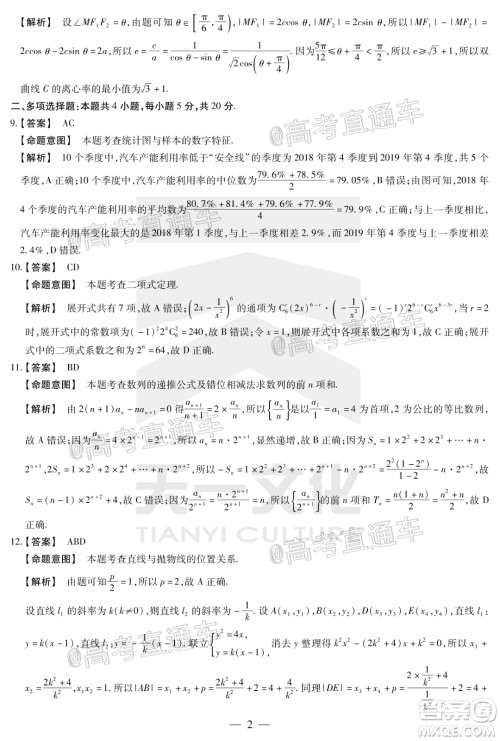 【解析】 设∠MF₁F₂=θ,由题可知θ∈[π/6,π/4],|MF₁|=2ccos θ,|MF₂|=2csin θ,所以|MF₁|-|MF₂|=
2ccos θ-2csin θ=2a,所以e=c/a=1/(cos θ-sin θ)=1/(√2cos(θ+π/4)).因为5π/12≤θ+π/4<π/2,所以e≥√3+1,所以双
曲线C的离心率的最小值为√3+1.
二、多项选择题:本题共4小题,每小题5分,共20分.
9.【答案】 AC
【命题意图】 本题考查统计图与样本的数字特征.
【解析】 10个季度中,汽车产能利用率低于“安全线”的季度为2018年第4季度到2019年第4季度,共5个季
度,A正确;10个季度汽车产能利用率的中位数为(79.6%+78.5%)/2=79.05%,B错误;由图可知,2018年
4个季度的汽车产能利用率的平均数为(80.7%+81.4%+79.6%+77.9%)/4=79.9%,C正确;与上一季度相比,
汽车产能利用率变化最大的是2018年第1季度,与上一季度相差2.9%,而2018年第4季度与上一季度相差
2.4%,D错误.
10.【答案】 CD
【命题意图】 本题考查二项式定理.
【解析】 展开式共有7项,故A错误;(2x-1/x²)⁶的通项为C₆ʳ(2x)⁶⁻ʳ·(-1/x²)ʳ=(-1)ʳ2⁶⁻ʳC₆ʳx⁶⁻³ʳ,当r=2
时,展开式中的常数项为(-1)²2⁴C₆²=240,故B错误;令x=1,则展开式中各项系数之和为1,故C正确;展开
式中的二项式系数之和为2⁶=64,故D正确.
11.【答案】 BD
【命题意图】 本题考查数列的递推公式及错位相减法求数列的前n项和.
【解析】 由2(n+1)aₙ-naₙ₊₁=0得aₙ₊₁/(n+1)=2×aₙ/n,所以{aₙ/n}是以a₁/1=a₁=4为首项,2为公比的等比数列,
故A错误;因为aₙ/n=4×2ⁿ⁻¹=2ⁿ⁺¹,所以aₙ=n·2ⁿ⁺¹,显然递增,故B正确;因为Sₙ=1×2²+2×2³+…+n·
2ⁿ⁺¹,2Sₙ=1×2³+2×2⁴+…+n·2ⁿ⁺²,所以-Sₙ=1×2²+2³+…+2ⁿ⁺¹-n·2ⁿ⁺²=2²(1-2ⁿ)/(1-2)-n·2ⁿ⁺²,故
Sₙ=(n-1)×2ⁿ⁺²+4,故C错误;因为aₙ/2ⁿ⁺¹=n·2ⁿ⁺¹/2ⁿ⁺¹=n,所以{aₙ/2ⁿ⁺¹}的前n项和Tₙ=n(1+n)/2=(n²+n)/2,故D
正确.
12.【答案】 ABD
【命题意图】 本题考查直线与抛物线的位置关系.
【解析】 由题可知p/2=1,所以p=2,故A正确;
设直线l₁的斜率为k(k≠0),则直线l₂的斜率为-1/k.设A(x₁,y₁),B(x₂,y₂),D(x₃,y₃),E(x₄,y₄),直线l₁:
y=k(x-1),直线l₂:y=-1/k(x-1).联立{y²=4x,y=k(x-1), 消去y整理得k²x²-(2k²+4)x+k²=0,所以x₁+
x₂=(2k²+4)/k²,x₁x₂=1.所以|AB|=x₁+x₂+p=(2k²+4)/k²+2=4+4/k².同理|DE|=x₃+x₄+p=(2×1/k²+4)/(1/k²)+2=4+
— 2 —
天一文化
TIANYI CULTURE
@高考直通车
@高考直通车
@高考直通车
@高考直通车
答案圈